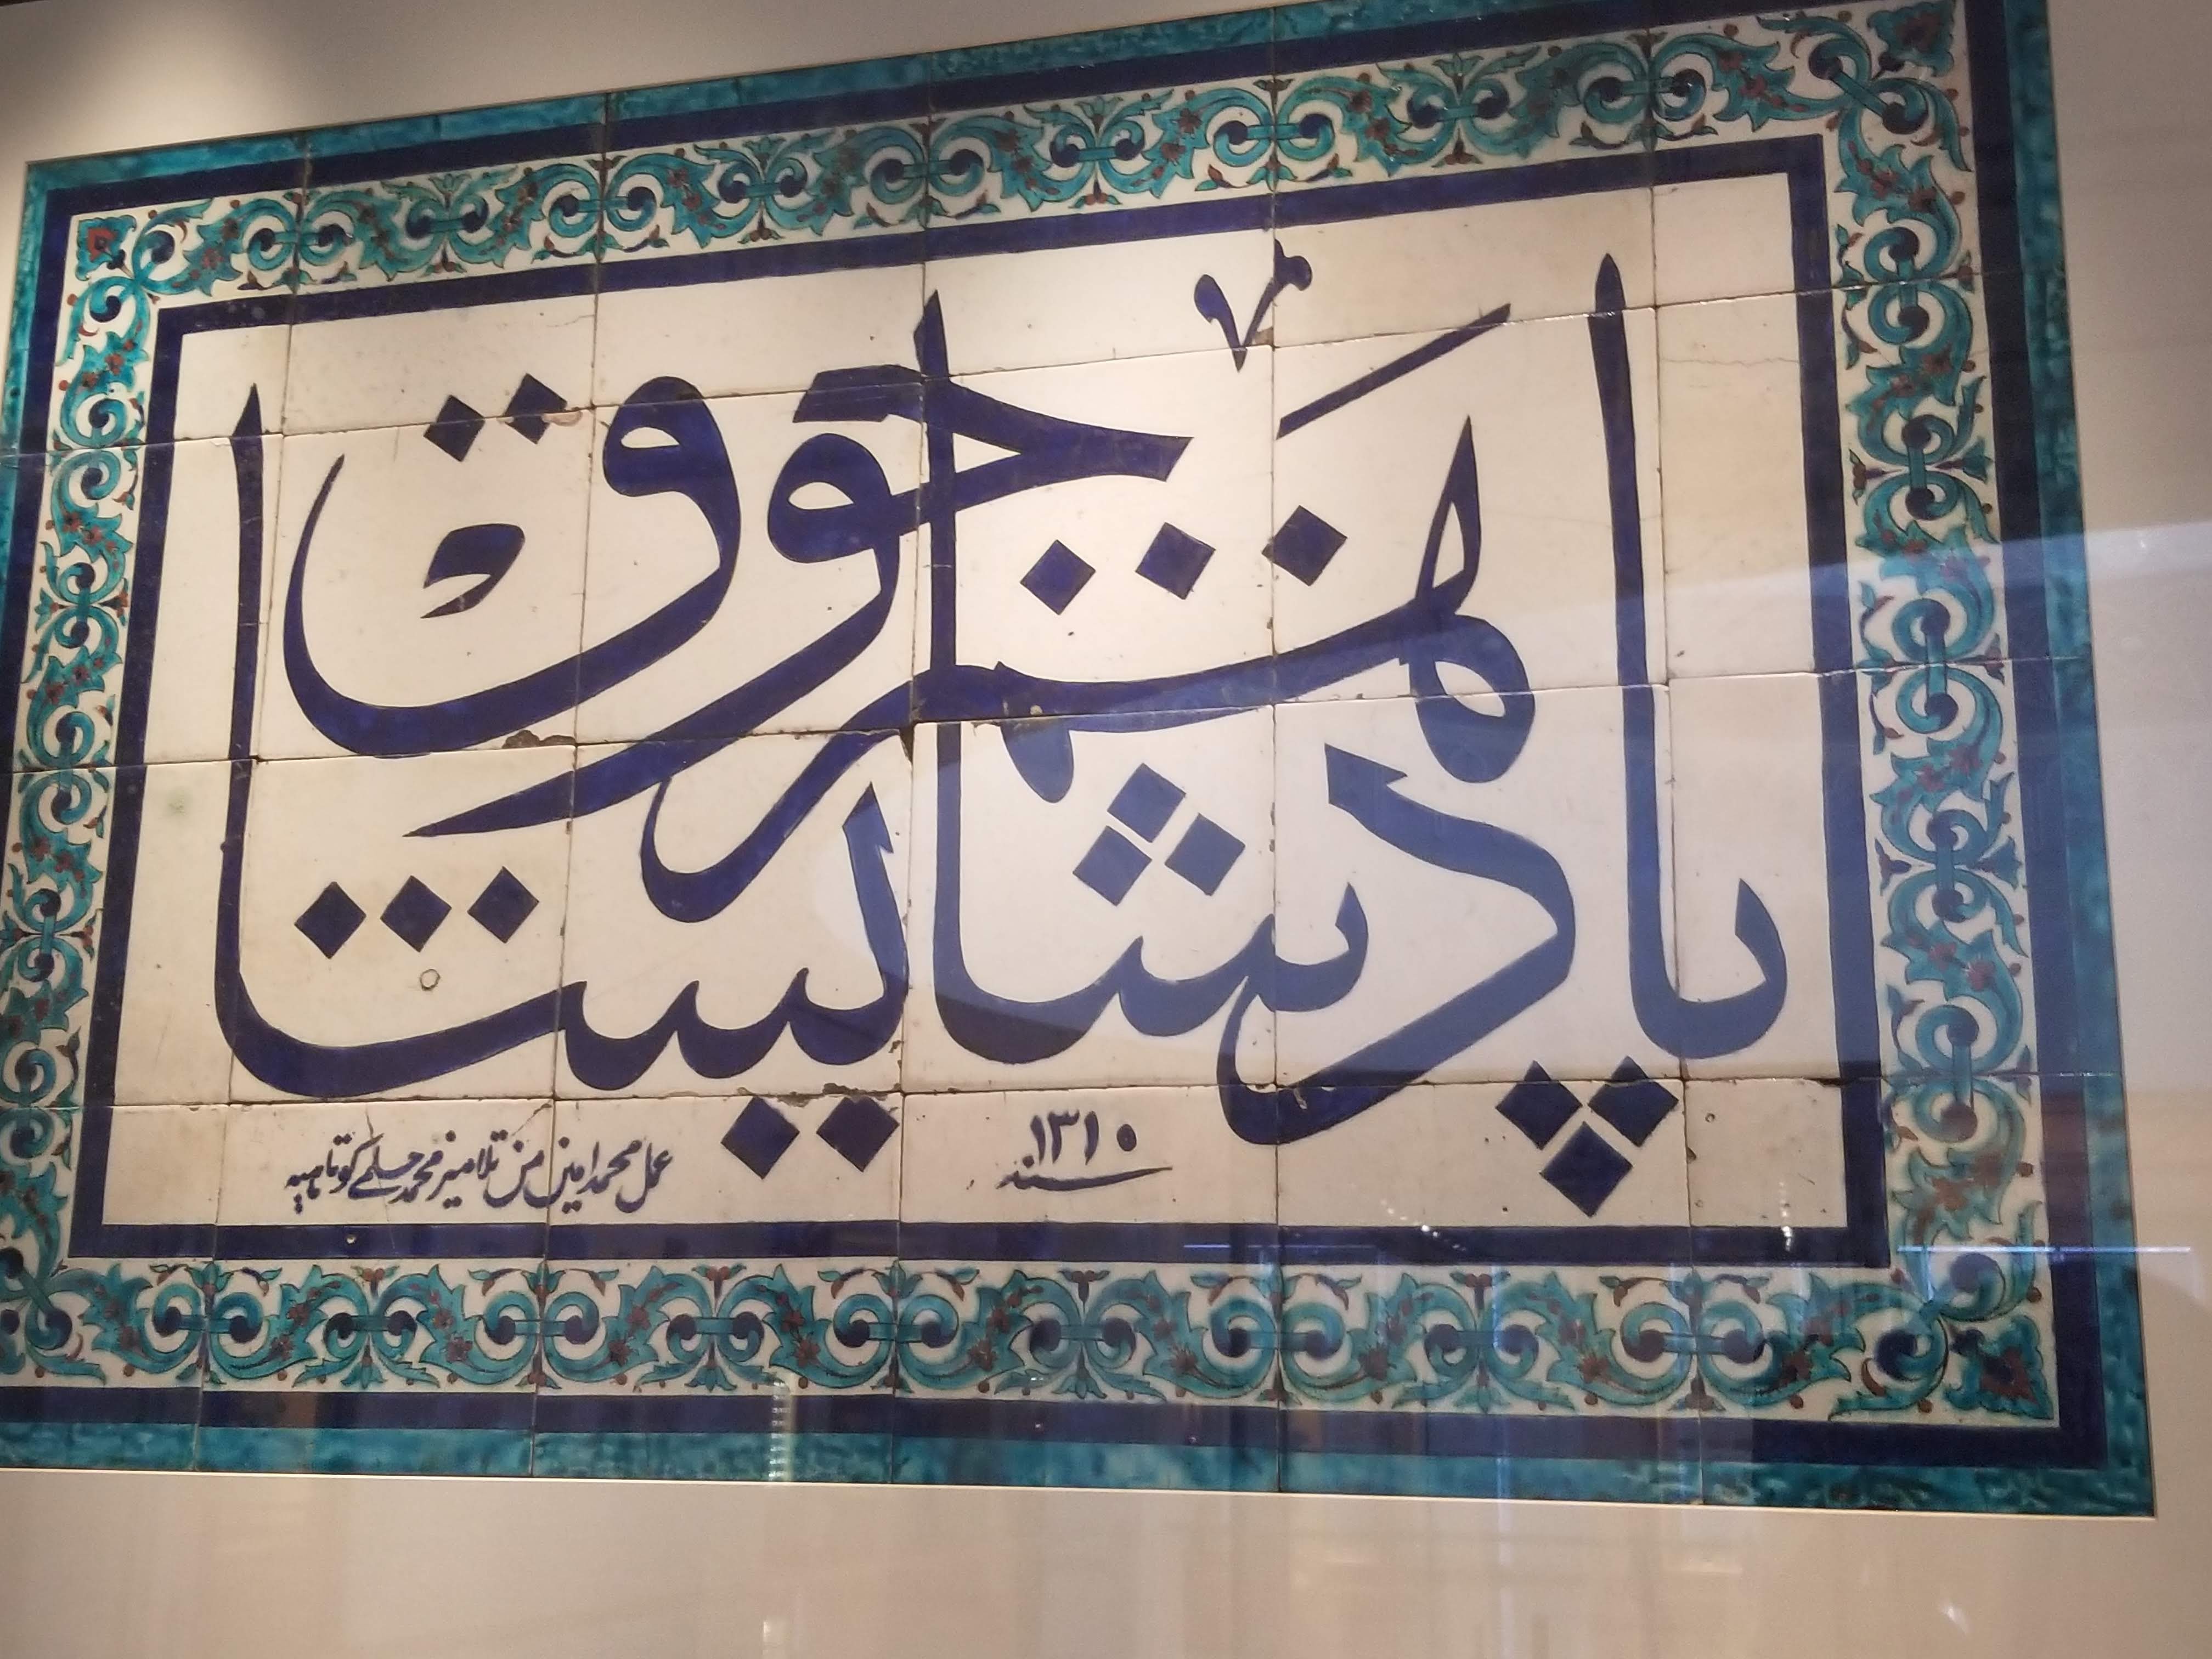 پادشاهم چوق يشا
سنه ١٣١٠
عمل محمد امين من تلاميذ محمد حلمی کوتاهيه